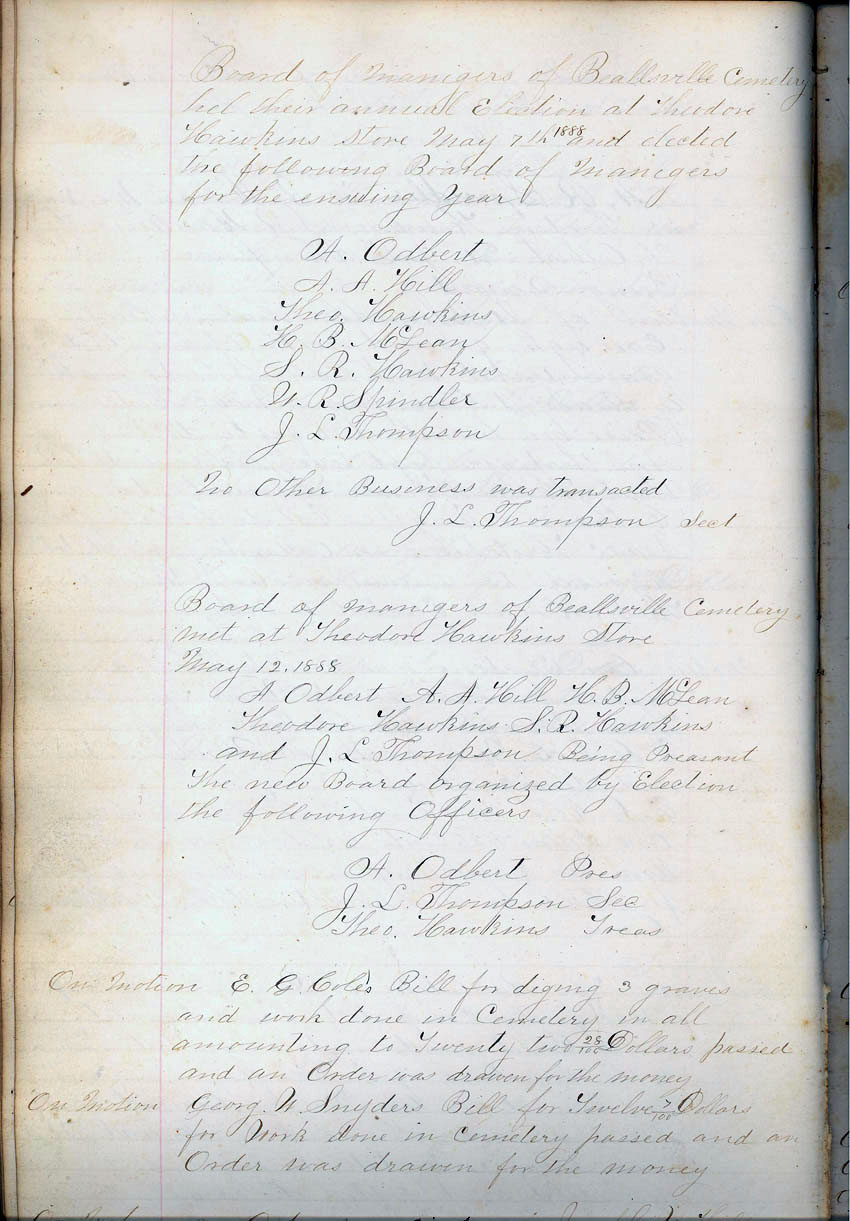 Board of Manigers of Beallsville Cemetery
hel their annual Election at Theodore
Hawkins Store May 7th 1888 and elected
the following Board of Manigers
for the ensuing Year
A. Odbert
A. A. Hill
Theo. Hawkins
H. B. McLean
S. R. Hawkins
W. R. Spindler
J. L. Thompson
No Other Business was transacted
J. L. Thompson Sect
Board of Manigers of Beallsville Cemetery
met at Theodore Hawkins Store
May 12, 1888
A Odbert A. A. Hill H. B. McLean
Theodore Hawkins S. R. Hawkins
and J. L Thompson Being Preasant
The new Board organized by Election
the following Officers
A. Odbert Pres
J. L. Thompson Sec
Theo. Hawkins Treas
On Motion E. G. Cole's Bill for diging 3 graves
and work done in Cemetery in all
amounting to Twenty two 28/100 Dollars passed
and an Order was drawen for the money
On Motion Georg. W. Snyders Bill for Twelve 7/100 Dollars
for Work done in Cemetery passed and an
Order was drawen for the money